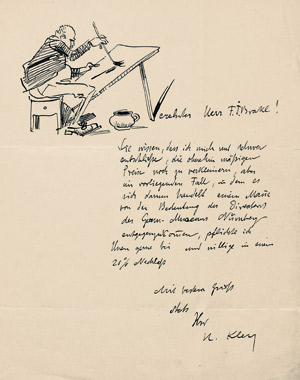 Verehrter Herr F. J. Brakl!
Sie wissen, dass ich mich nur schwer
entschließe, die ohnehin mäßigen
Preise noch zu verkleinern, aber
im vorliegenden Fall, in dem es
sich darum handelt einem Manne
von der Bedeutung des Direktors
des Germ. Museums Nürnberg
entgegenzukommen, pflichte ich
Ihnen gerne bei und willige in einen
20% Nachlass
Mit bestem Gruß
stets
Ihr
H. Kley